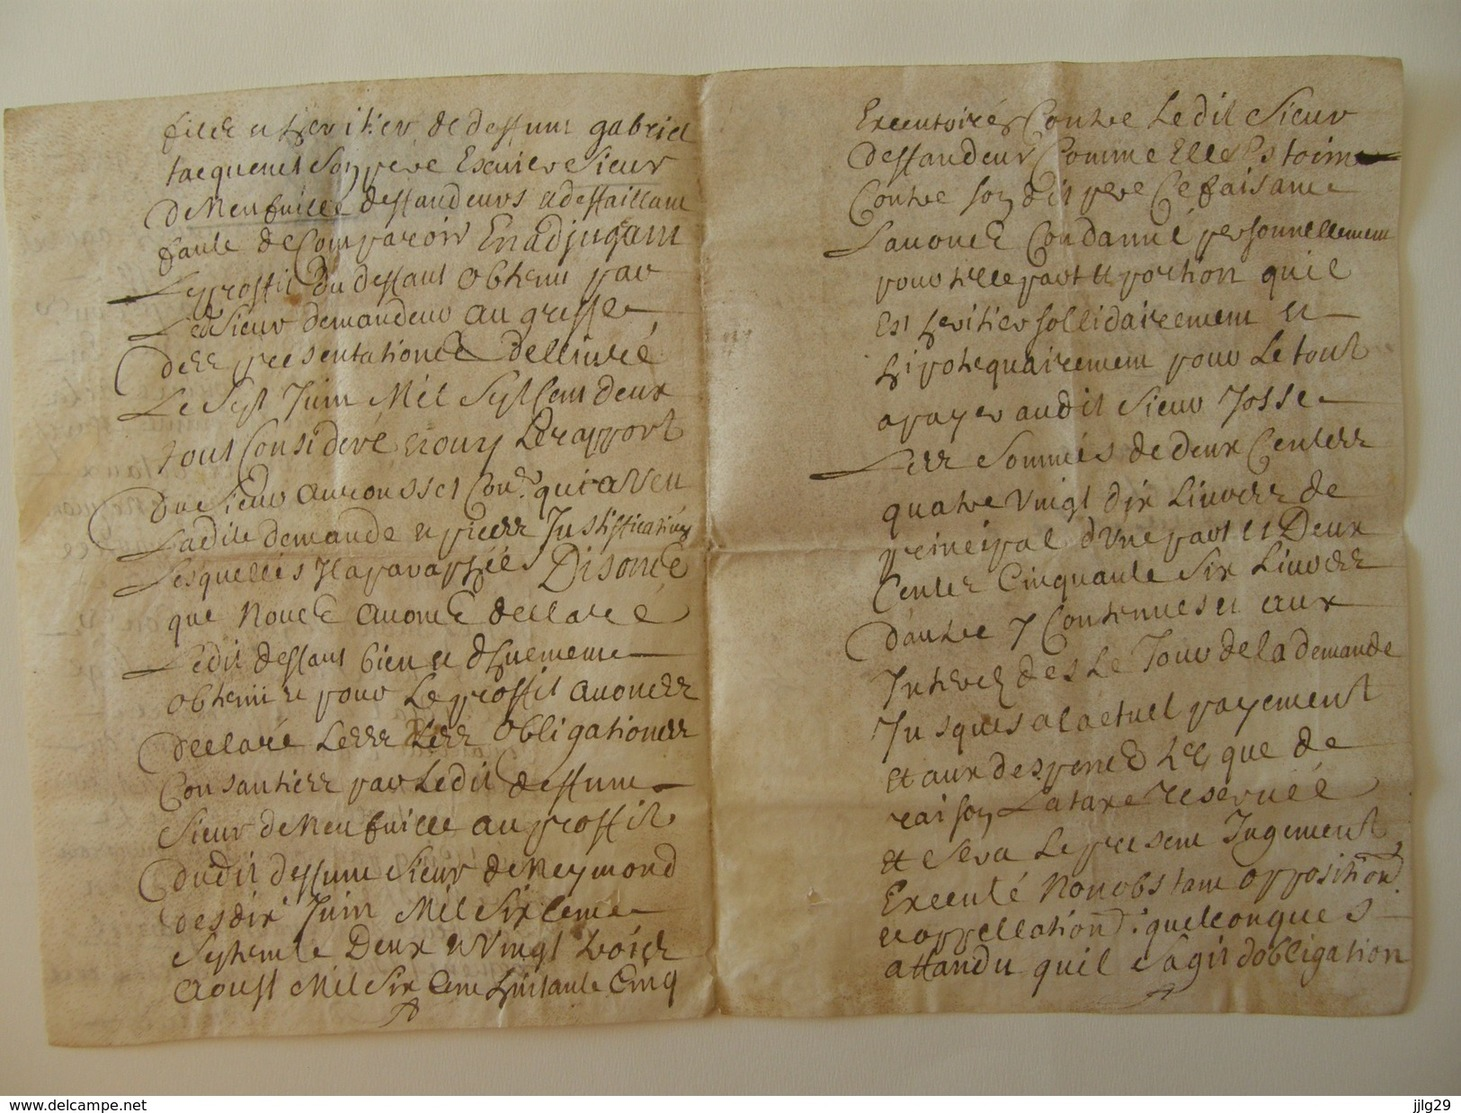 filz et heritier de deffunt gabriel
Jacquenet son pere Escuier Sieur
de Neufuille deffandeurs et deffaillant
faute de Comparoir En adjugant
Le proffit du deffaut obtenu par
Led. Sieur demandeur au greffe
des presentations dellivré
Le Sept Juin Mil Sept Cent deux
tout Consideré et ouy Le rapport
du Sieur Con.r qui a Veu
Ladite demande et pieces Justificatives
Lesquelles Il a paraphées Disons
que Nous auons declaré
Ledit deffaut bien et dhuement
obtenu et pour Le proffit auons
declaré Les obligations
Consanties par Ledit deffunt
Sieur de Neufuille au proffit
dudit deffunt Sieur de Reymond
des dix Juin Mil Six Cent
Septente Deux et Vingt trois
Aoust Mil Six Cent huitante Cinq
Executoires Contre Ledit Sieur
deffandeur Comme Elles Estoint
Contre son dit pere Ce faisant
Lauons Condanné personnellement
pour telle part et portion quil
Est heritier sollidairement et
hipotequairement pour Le tout
a payer audit Sieur Josse
Les Sommes de deux Centes
quatre Vingt dix Liures de
principal d'Une part et Deux
Centes Cinquante Six Liures
d'autre y Contenues et aux
Interes des Le Jour de la demande
Jusques a lactuel payement
et aux despens que de
raison La taxe reservée
et Sera Le present Jugement
Executé Nonobstant opposition
et appellations quelconques
attandu quil S'agit dobligation
jjlg29
www.delcampe.net